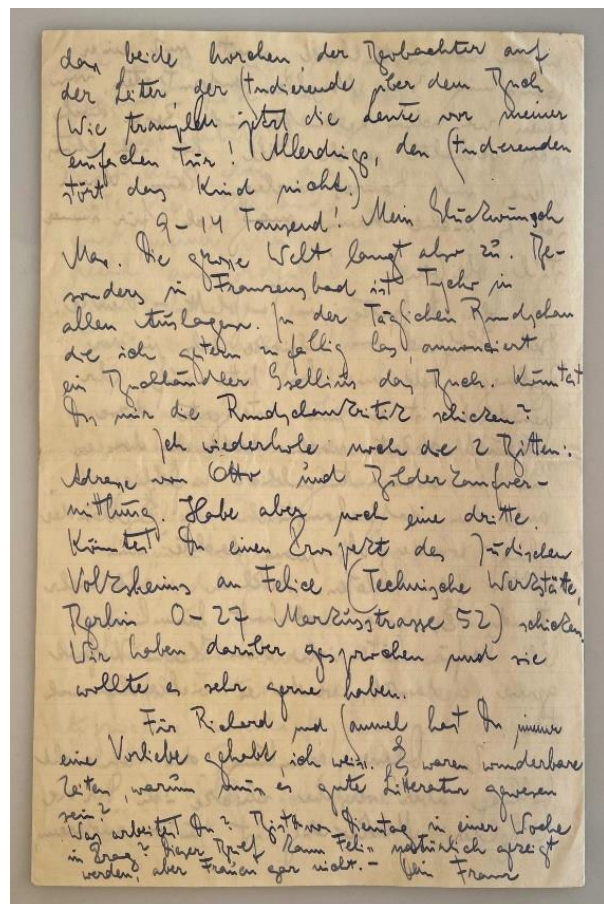 dass beide horchen, der Beobachter auf
der Leiter, der Studierende über dem Buch
(Wie trampeln jetzt die Leute vor meiner
einfachen Tür! Allerdings, den Studierenden
stört das Kind nicht.)
9-14 Tausend! Mein Glückwunsch
Max. Die grosse Welt langt also zu. Be-
sonders in Franzensbad ist Tycho in
allen Auslagen. In der Täglichen Rundschau
die ich gestern zufällig las, annonciert
ein Buchhändler Gsellius das Buch. Könntest
Du mir die Rundschaukritik schicken?
Ich wiederhole noch die 2 Bitten:
Adresse von Otto und Bilderkaufver-
mittlung. Habe aber noch eine dritte.
Könntest Du einen Prospekt des Jüdischen
Volksheims an Felice (Technische Werkstätte,
Berlin O-27 Markusstrasse 52) schicken.
Wir haben darüber gesprochen und sie
wollte es sehr gerne haben.
Für Richard und Samuel hast Du immer
eine Vorliebe gehabt, ich weiss. Es waren wunderbare
Zeiten, warum muss es gute Litteratur gewesen
sein?
Was arbeitest Du? Bist Du Dienstag in einer Woche
in Prag? Dieser Brief kann Felix natürlich gezeigt
werden, aber Frauen gar nicht.- Dein Franz